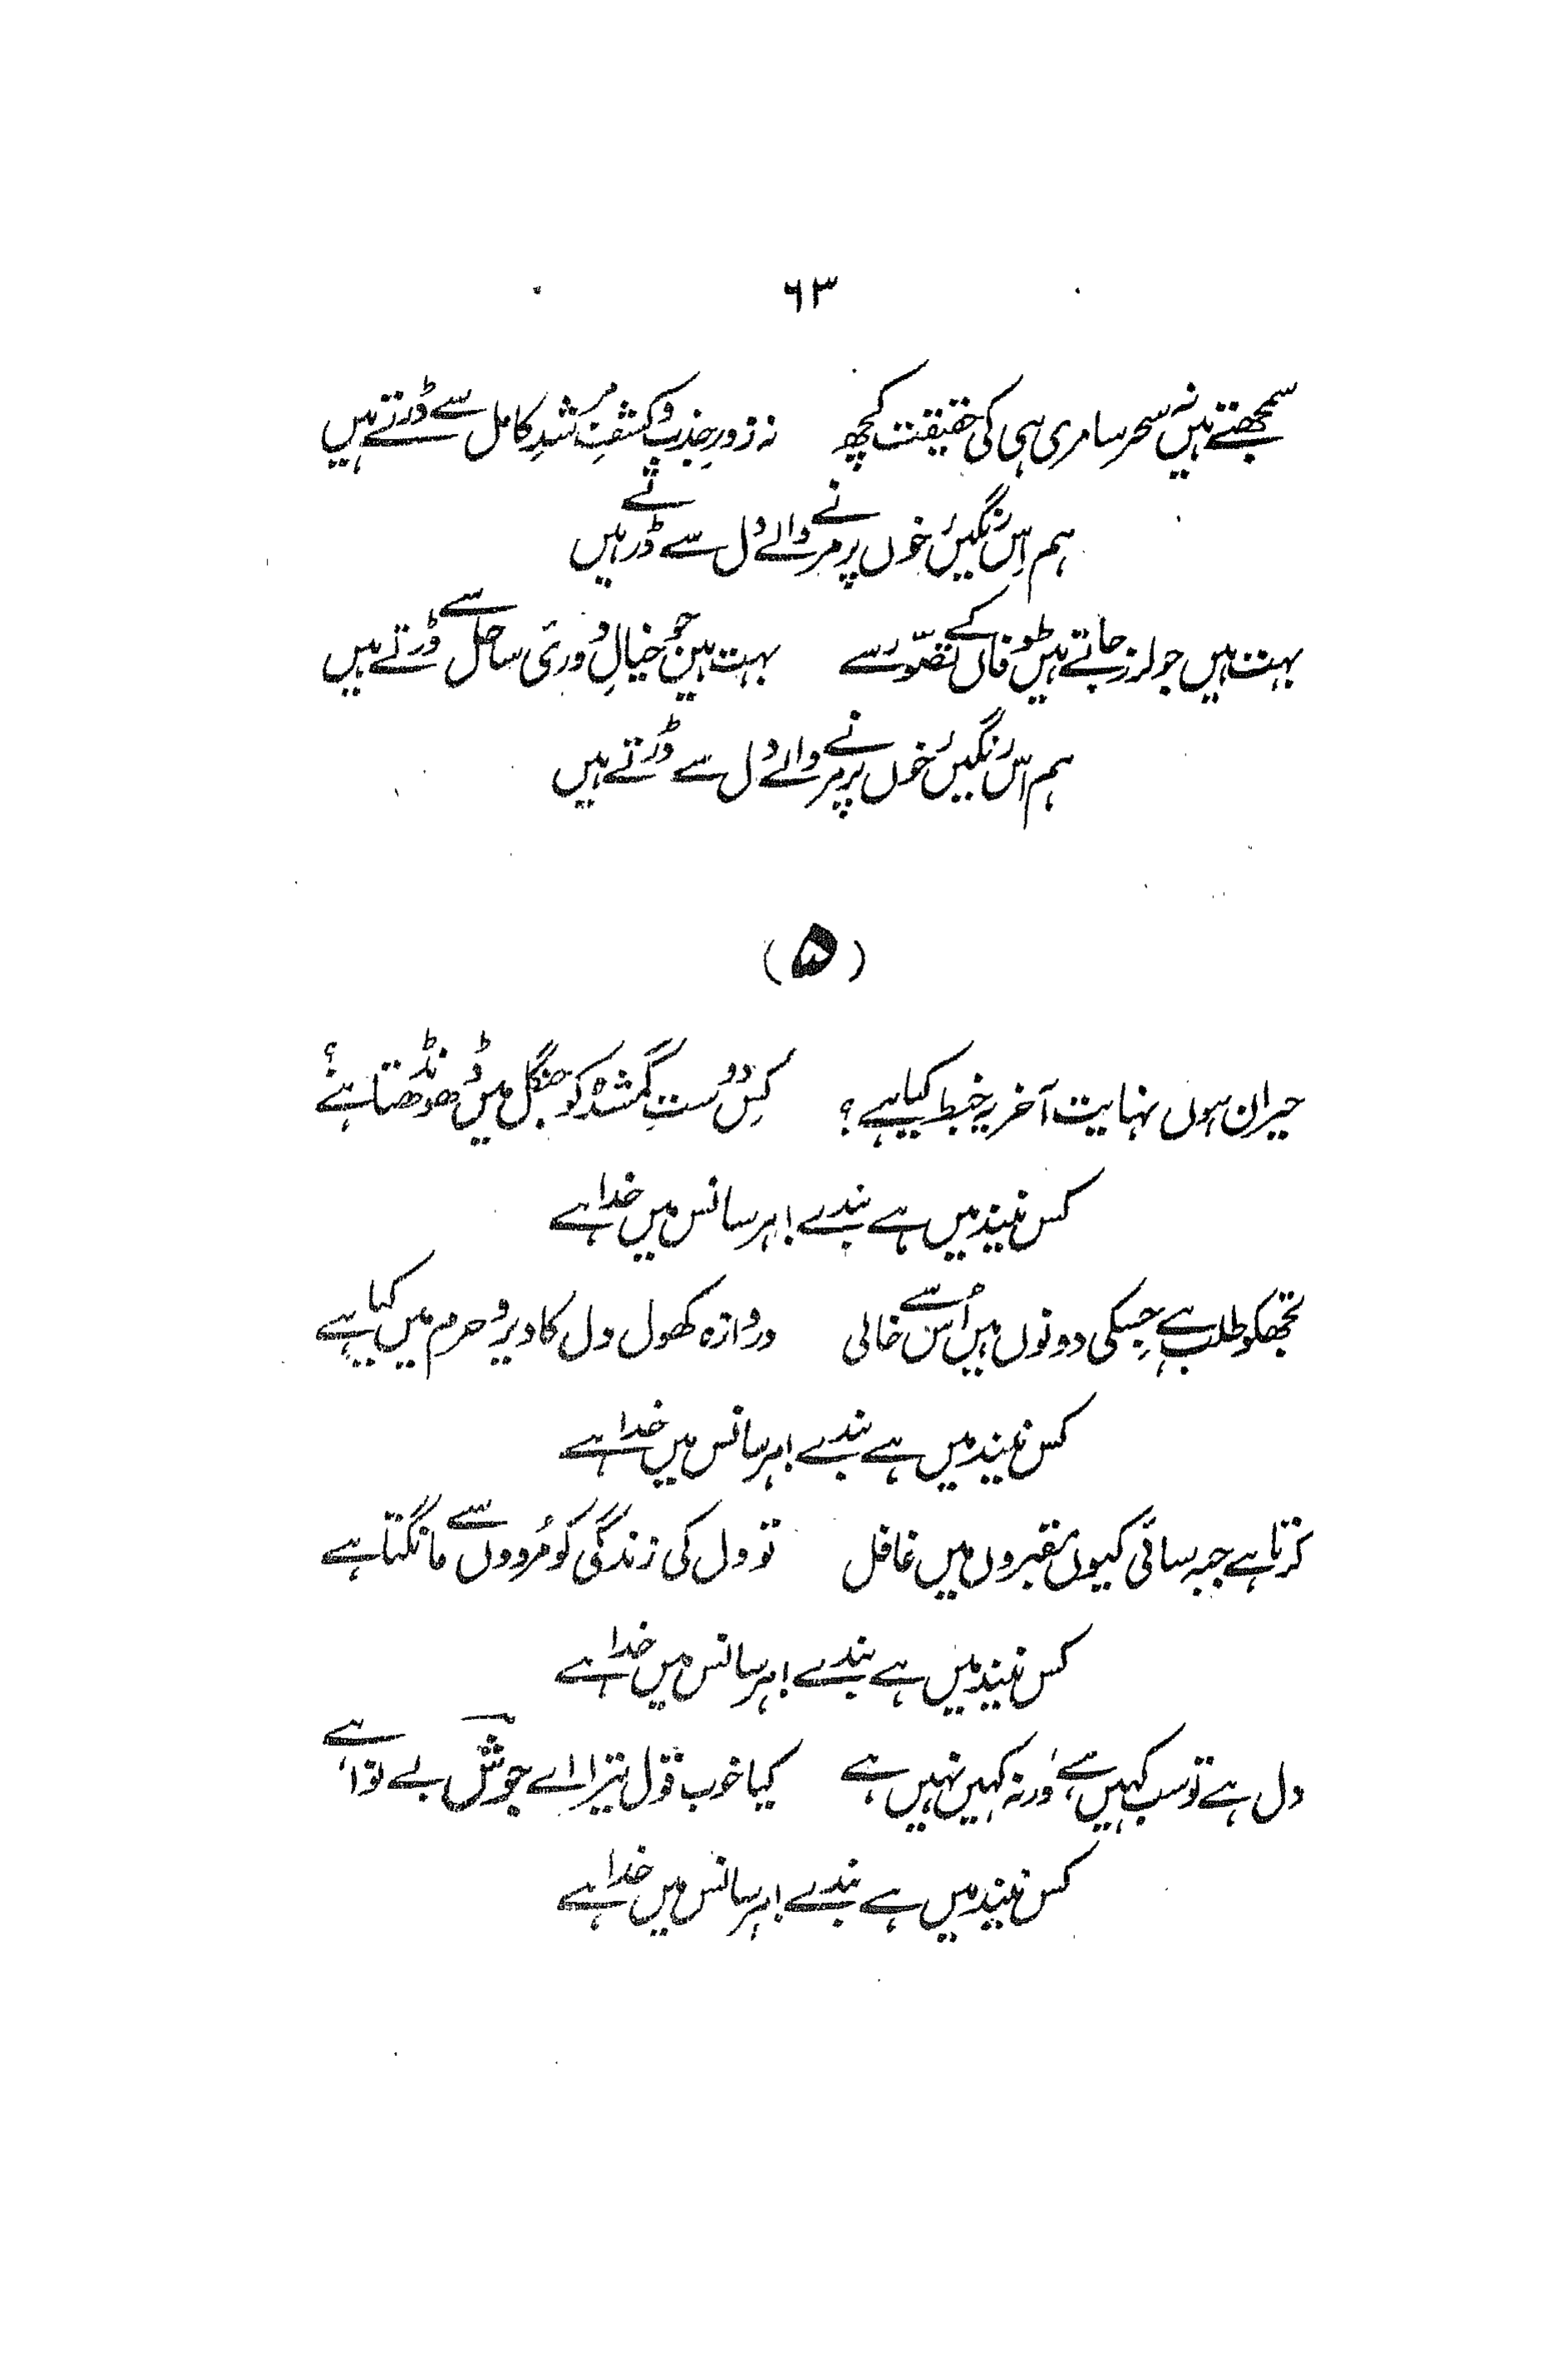 ۶۳
سمجھتے ہیں نہ سحر سامری ہی کی حقیقت کچھ نہ زورِ جذب و کشفِ مُرشدِ کامل سے ڈرتے ہیں
ہم اِس رنگینیٔ خوں پر مرنے والے دل سے ڈرتے ہیں
بہت ہیں جو لرز جاتے ہیں طوفاں کے تصوّر سے بہت ہیں جو خیالِ دوریٔ ساحل سے ڈرتے ہیں
ہم اس رنگینیٔ خوں پر مرنے والے دل سے ڈرتے ہیں
(۵)
حیران ہوں نہایت آخر یہ خبط کیا ہے؟ کِس دوستِ گمشدہ کو جنگل میں ڈھونڈھتا ہے؟
کس نیند میں ہے بندے! ہر سانس میں خدا ہے
تجھکو طلب ہے جِسکی دونوں ہیں اُس سے خالی دروازہ کھول دل کا دیر و حرم میں کیا ہے
کس نیند میں ہے بندے! ہر سانس میں خدا ہے
کرتا ہے جبہ سائی کیوں مقبروں میں غافل تو دل کی زندگی کو مُردوں سے مانگتا ہے
کس نیند میں ہے بندے! ہر سانس میں خدا ہے
دل ہے تو سب کہیں ہے، ورنہ کہیں نہیں ہے کیا خوب قول تیرا اے جوشؔ بے نوا ہے
کس نیند میں ہے بندے! ہر سانس میں خدا ہے